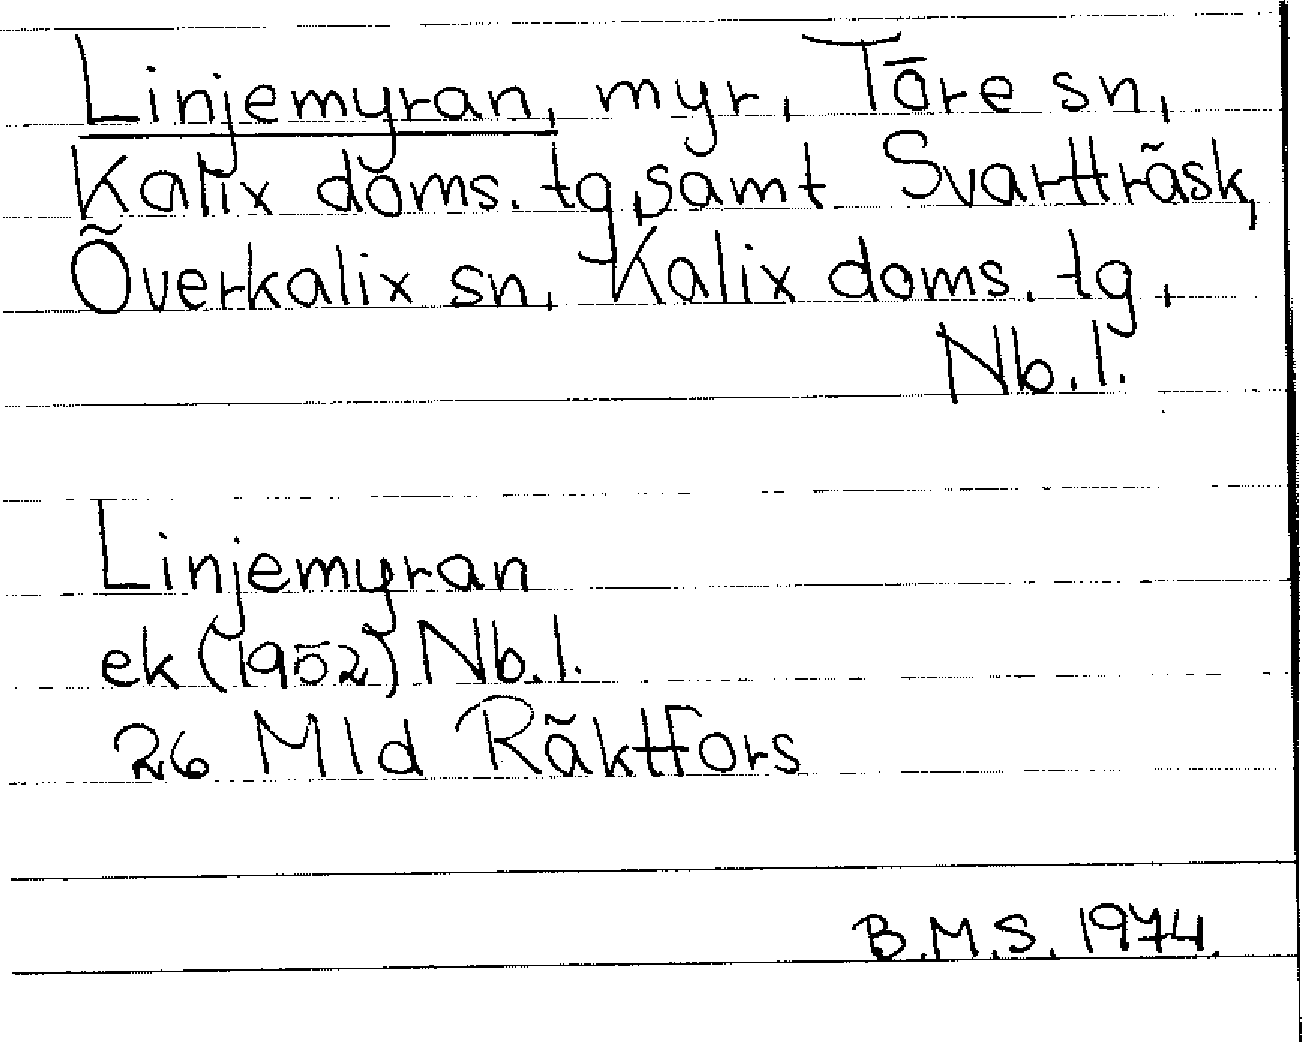 Linjemyran, myr, Töre sn,
Kalix doms. tg, samt Svartträsk,
Överkalix sn, Kalix doms. tg,
Nb. l.
Linjemyran
ek (1952) Nb. l.
26 Mld Räktfors
B.M.S. 1974.